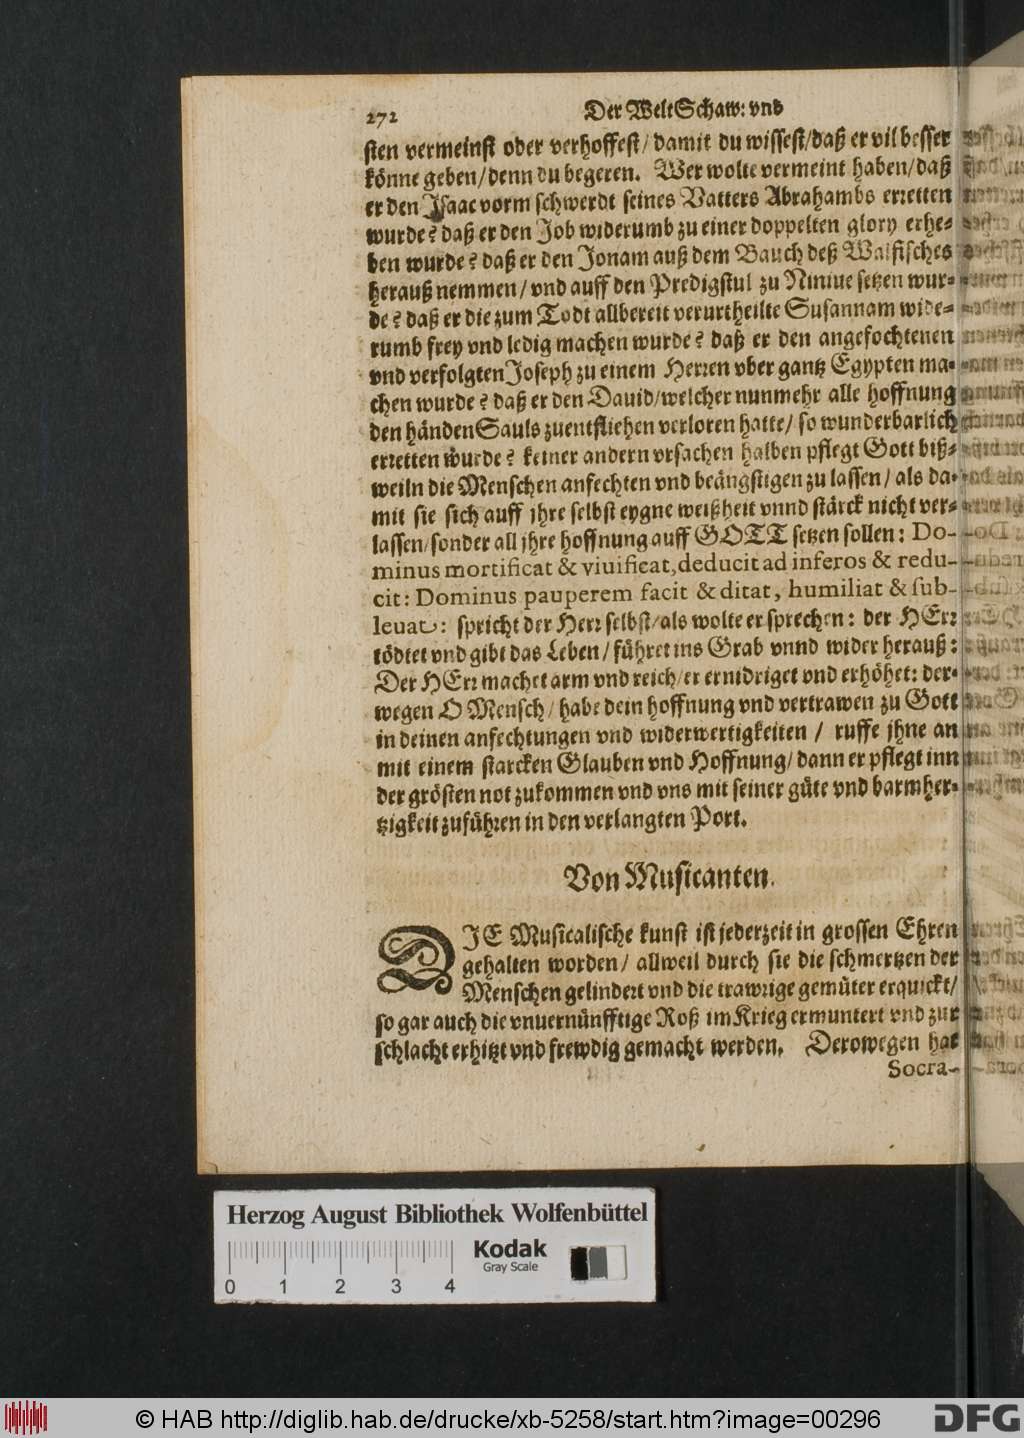 272
Der Welt Schaw: vnd
sten vermeinst oder verhoffest/ damit du wissest/daß er vil besser
könne geben/denn du begeren. Wer wolte vermeint haben/daß
er den Isaac vorm schwerdt seines Vatters Abrahambs erretten
wurde? daß er den Job widerumb zu einer doppelten glory erhe-
ben wurde? daß er den Jonam auß dem Bauch deß Walfisches
herauß nemmen/ vnd auff den Predigstul zu Niniue setzen wur-
de? daß er die zum Todt allbereit verurtheilte Susannam wide-
rumb frey vnd ledig machen wurde? daß er den angefochtenen
vnd verfolgten Joseph zu einem Herren vber gantz Egypten ma-
chen wurde? daß er den Dauid/welcher nunmehr alle hoffnung
den händen Sauls zuentfliehen verloren hatte/ so wunderbarlich
erretten wurde? keiner andern vrsachen halben pflegt Gott biß-
weiln die Menschen anfechten vnd beängstigen zu lassen/ als da-
mit sie sich auff jhre selbst eygne weißheit vnnd stärck nicht ver-
lassen/sonder all jhre hoffnung auff GOTT setzen sollen: Do-
minus mortificat & viuificat, deducit ad inferos & redu-
cit: Dominus pauperem facit & ditat, humiliat & sub-
leuat: spricht der Herr selbst/als wolte er sprechen: der HErr
tödtet vnd gibt das Leben/ führet ins Grab vnnd wider herauß:
Der HErr machet arm vnd reich/er ernidriget vnd erhöhet: der-
wegen O Mensch/ habe dein hoffnung vnd vertrawen zu Gott
in deinen anfechtungen vnd widerwertigkeiten / ruffe jhne an
mit einem starcken Glauben vnd Hoffnung/ dann er pflegt inn
der grösten not zukommen vnd vns mit seiner güte vnd barmher-
tzigkeit zuführen in den verlangten Port.
Von Musicanten.
DIE Musicalische kunst ist jederzeit in grossen Ehren
gehalten worden/ allweil durch sie die schmertzen der
Menschen gelindert vnd die trawrige gemüter erquickt/
so gar auch die vnuernünfftige Roß im Krieg ermuntert vnd zur
schlacht erhitzt vnd frewdig gemacht werden. Derowegen hat
Socra-
Herzog August Bibliothek Wolfenbüttel
Kodak
Gray Scale
0 1 2 3 4
© HAB http://diglib.hab.de/drucke/xb-5258/start.htm?image=00296
DFG